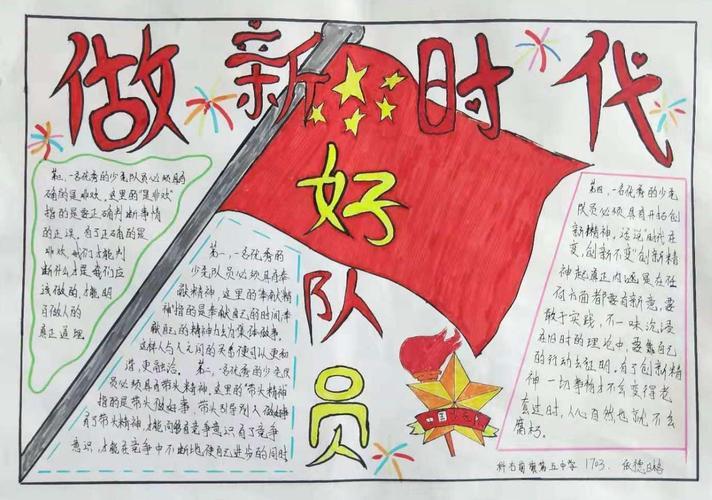 做新时代
好
队
员
第三、一名优秀的少先队员必须具有
正确的是非观，这里的"是非观"
指的是要正确判断事情
的正误，有了正确的是
非观，我们才能判
断什么才是我们应
该做的，才能明
白做人的
真正道理
第一、一名优秀的
少先队员必须具有奉
献精神，这里的"奉献精
神"指的是奉献自己的时间，奉
献自己的精神力去为集体做事，
这样人与人之间的关系便可以更和
谐，更融洽。第二、一名优秀的少先队
员必须具有带头精神，这里的"带头精神"
指的是带头做好事，带头引导别人做好事
有了带头精神，才能同时有竞争意识，有了竞争
意识，才能在竞争中不断地使自己进步的同时
第四、一名优秀的少先
队员必须具有开拓创
新精神，话说"时代在
变，创新不变"创新精
神起真正内涵是在任
何方面都要有新意，要
敢于实践，不一味沉浸
在旧时的理论中，要靠自己
的行动去证明，有了创新精
神一切事物才不会变得老
套过时，人心自然也就不会
腐朽。
中国少先队
科右前旗第五中学 1703.